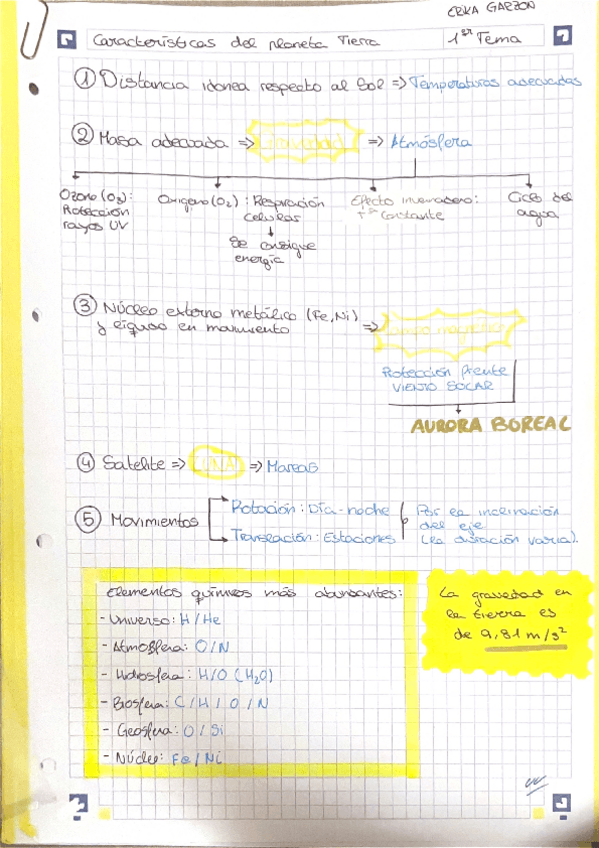 ERIKA GARZON
Características del planeta Tierra
1er Tema
① Distancia idonea respecto al Sol => Temperaturas adecuadas
② Masa adecuada => Gravedad => Atmósfera
Ozono (O3):
Protección
rayos UV
Oxigeno (O2) : Respiración
celular
Se consigue
energía
Efecto invernadero:
tª constante
Ciclo del
agua
③ Núcleo externo metálico (Fe, Ni)
y líquido en movimiento
=> Campo magnético
Protección frente
VIENTO SOLAR
AURORA BOREAL
④ Satelite => LUNA => Mareas
⑤ Movimientos
Rotación : Día - noche
Translación : Estaciones
Por la inclinación
del eje
(la duración varia).
Elementos químicos más abundantes:
- Universo: H / He
- Atmosfera: O / N
- Hidrosfera: H/O (H2O)
- Biosfera: C / H / O / N
- Geosfera: O / Si
- Núcleo: Fe / Ni
La gravedad en
la tierra es
de 9,81 m/s²